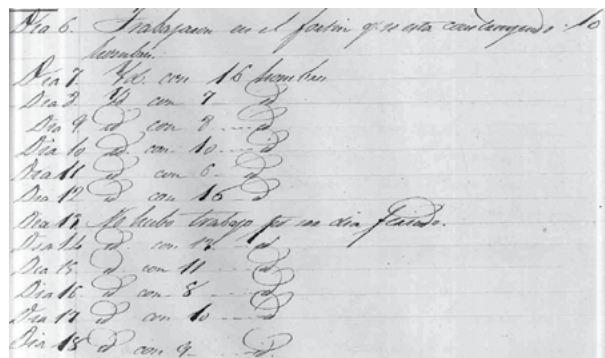 Dia 6. Trabajaron en el fortin q.e se esta construyendo. 10
hombres.
Dia 7. Yd. con 16 hombres
Dia 8. Yd con 7 id
Dia 9. id con 8 ... id
Dia 10 id con 10 .. id
Dia 11 id con 6 .. id
Dia 12 id con 16 id
Dia 13. No hubo trabajo por ser dia feriado.
Dia 14 id con 12 id
Dia 15. id con 11 .... id
Dia 16. id con 8 ... id
Dia 17 id con 10 ... id
Dia 18 id con 9 ... id.